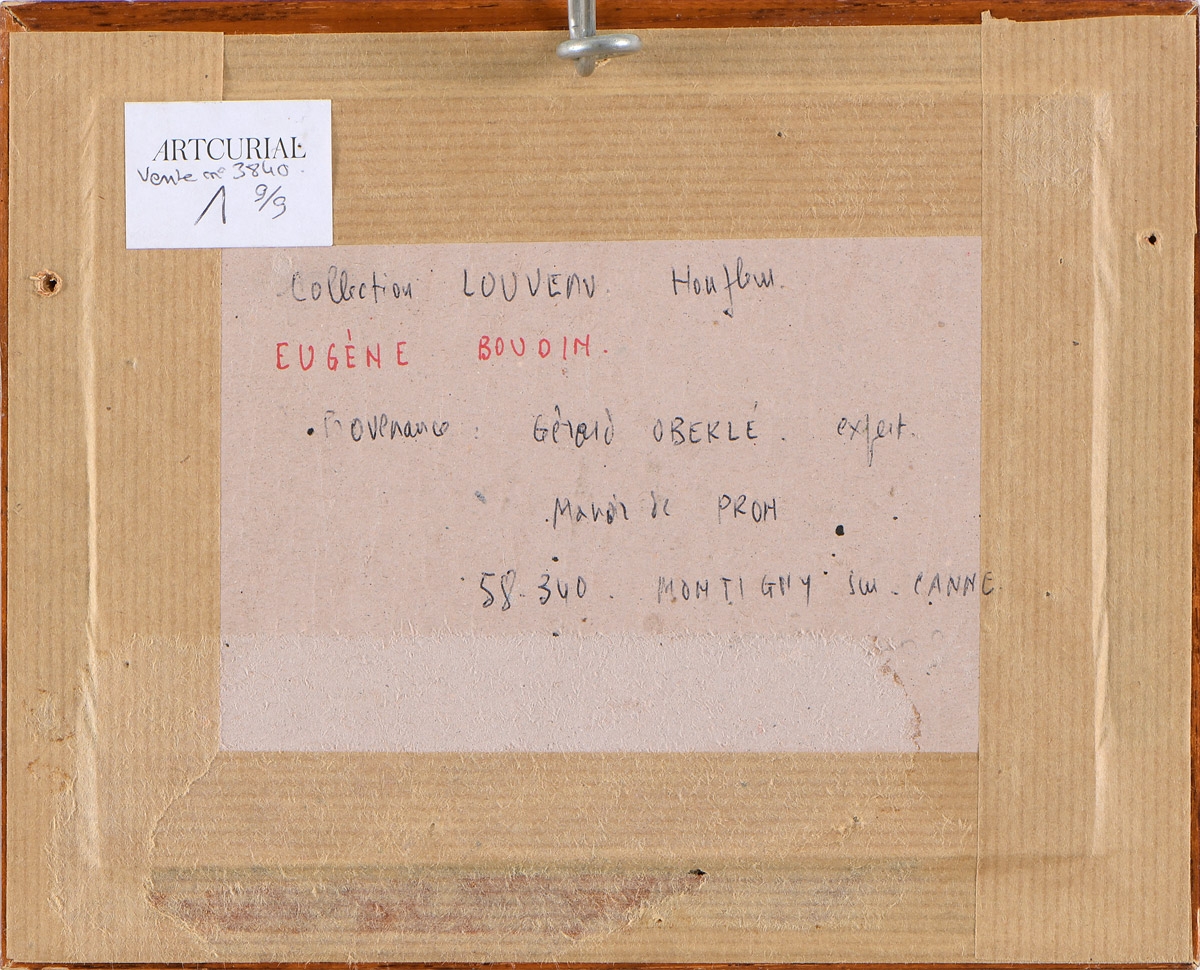 ARTCURIAL
Vente n° 3840.
1 9/9
Collection LOUVEAU. Honfleur.
EUGÈNE BOUDIN.
. Provenance : Gérard OBERLÉ. expert.
Manoir de PRON
58-340. MONTIGNY sur. CANNE.